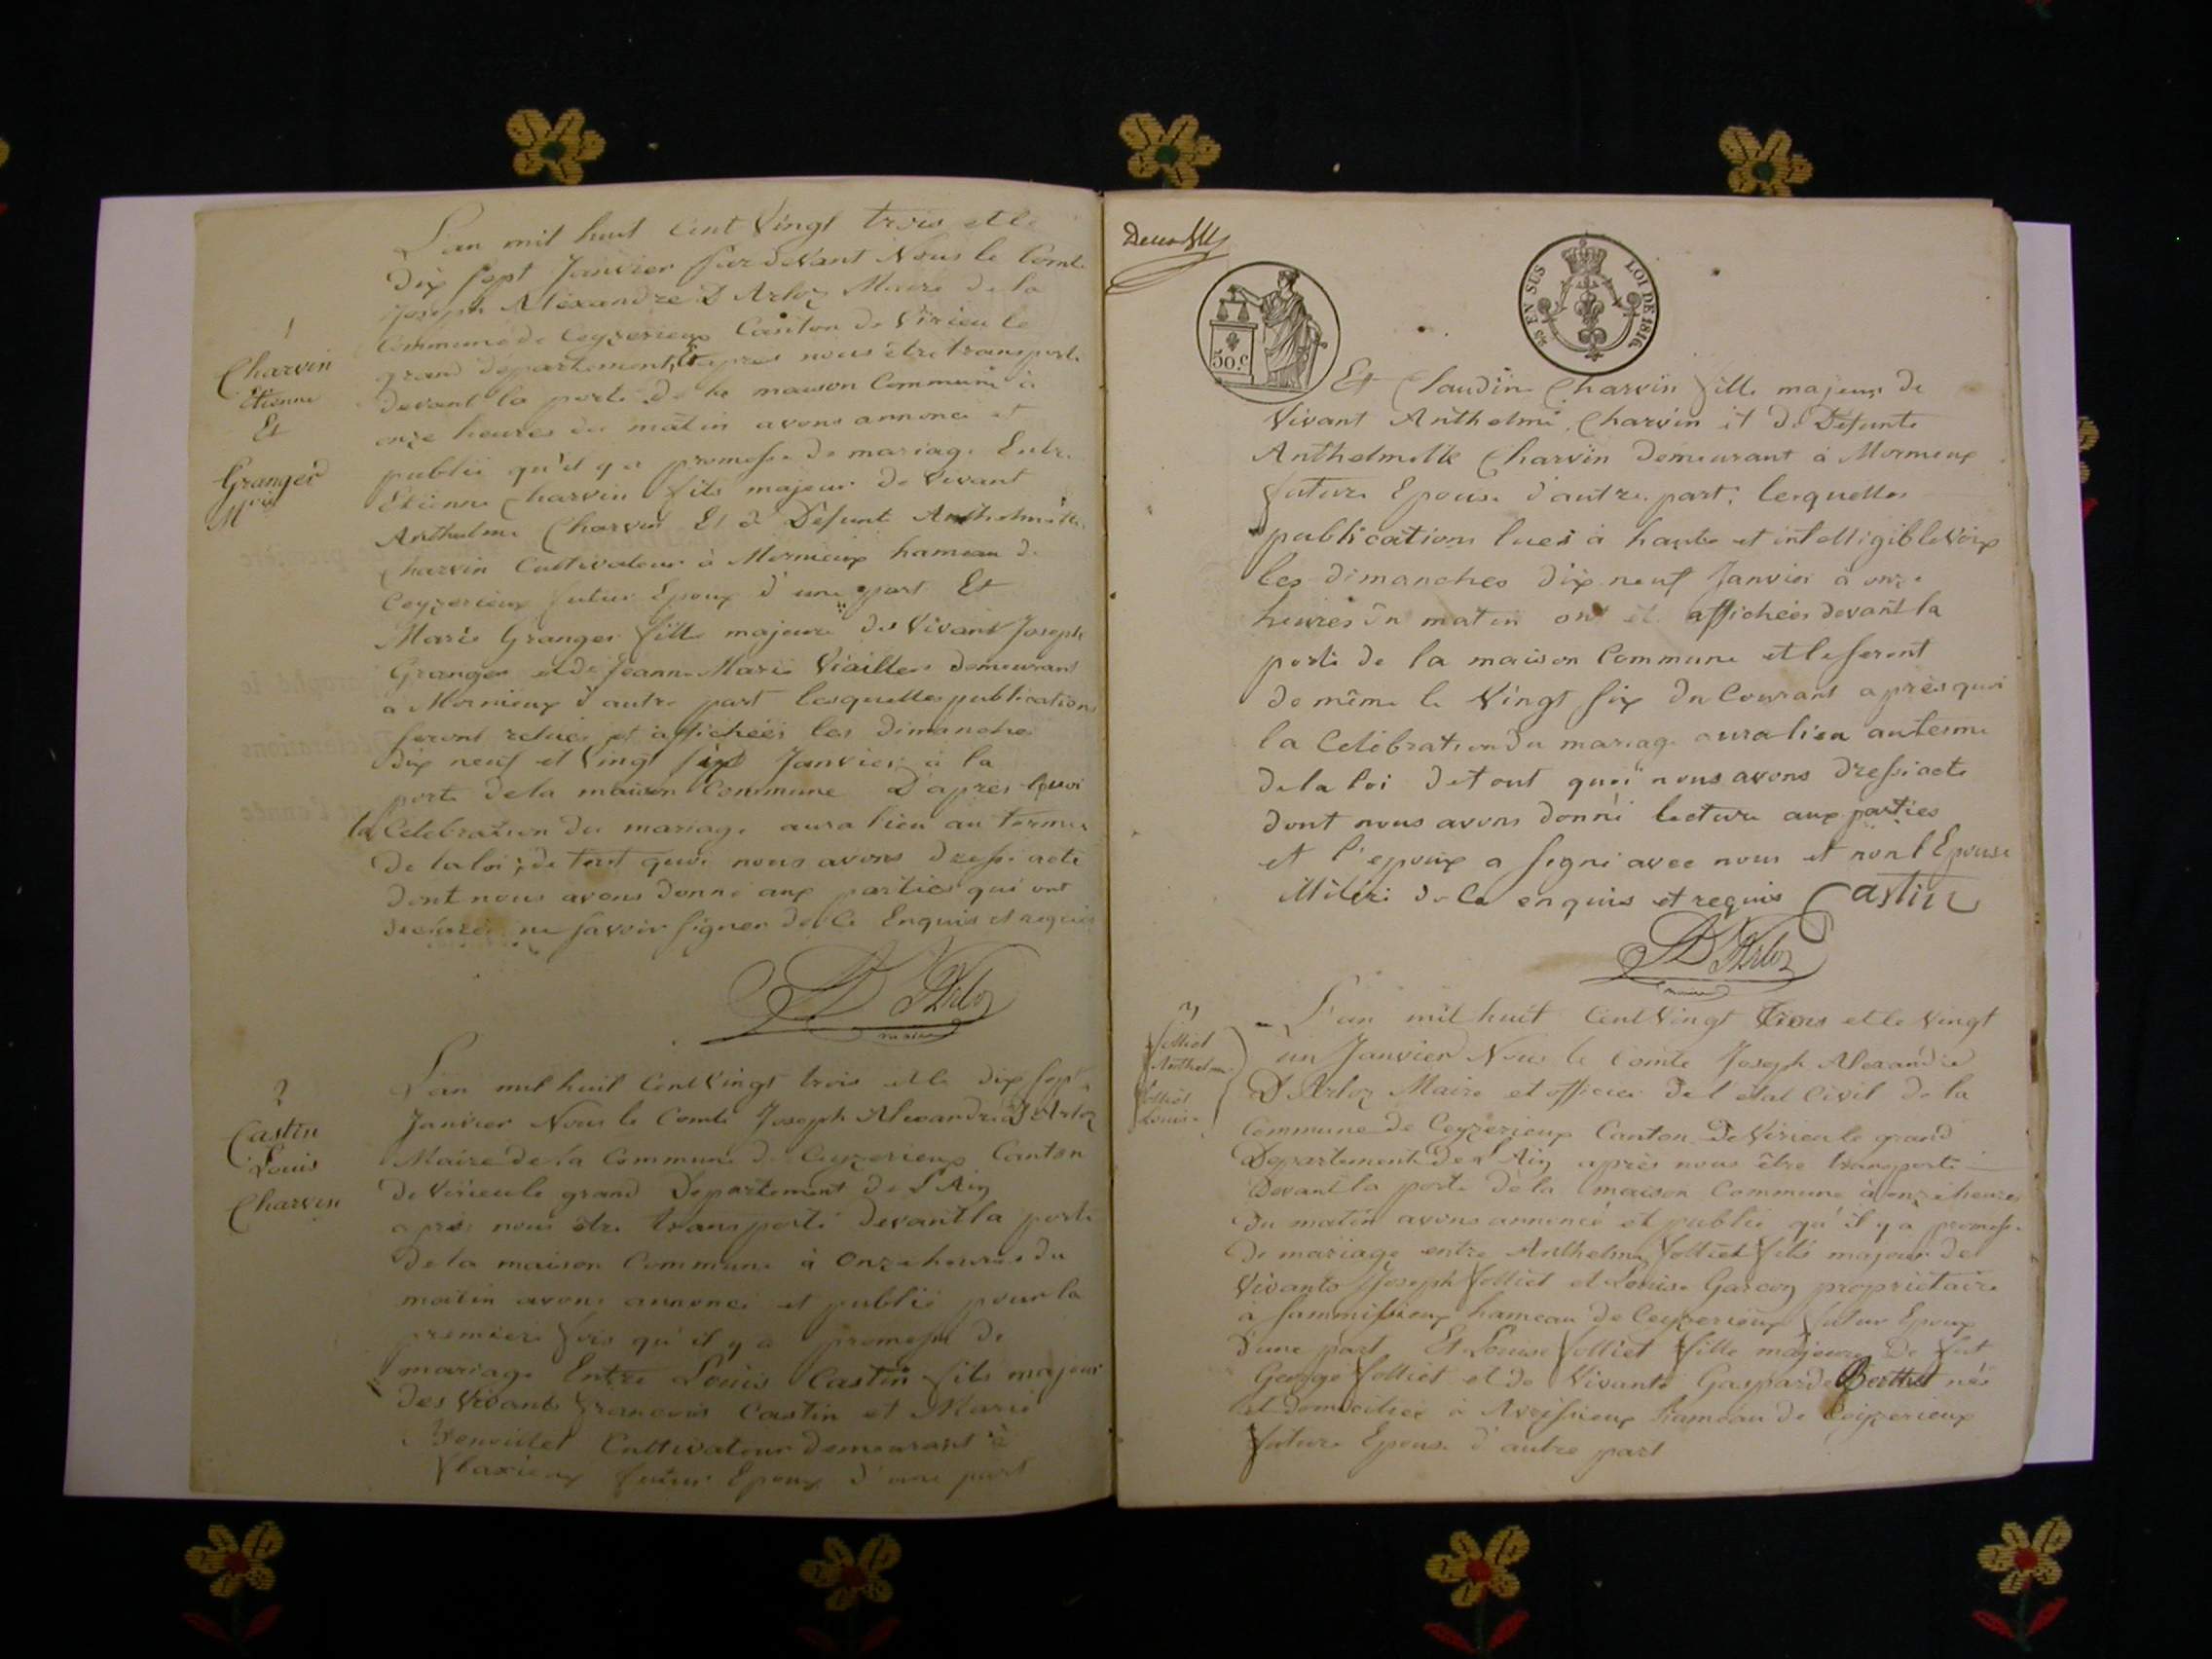 L'an mil huit Cent Vingt trois et le
dix sept Janvier pardevant Nous le Comte
Joseph Alexandre D'Arloz Maire de la
Commune de Ceyzerieux Canton de Virieu le
grand département, après nous être transporté
devant la porte de la maison Commune à
onze heures du matin avons annoncé et
publié qu'il y a promesse de mariage Entre
Etienne Charvin fils majeur de Vivant
Anthelme Charvin Et de Défunte Anthelmette
Charvin Cultivateur à Mornieux hameau de
Ceyzerieux futur Epoux d'une part Et
Marie Granger fille majeure des Vivants Joseph
Granger et de Jeanne Marie Viaillers demeurant
a Mornieux d'autre part lesquelles publications
seront relues et affichées les dimanches
dix neuf et Vingt six Janvier à la
porte de la maison Commune D'après quoi
la Celebration du mariage aura lieu au terme
de la loi; de tout quoi nous avons dressé acte
dont nous avons donné aux parties qui ont
declaré ne savoir signer de ce Enquis et requis
D'Arloz
maire
1
Charvin
Etienne
Et
Granger
Mrie
L'an mil huit Cent Vingt trois et le dix sept
Janvier Nous le Comte Joseph Alexandre D'Arloz
Maire de la Commune de Ceyzerieux Canton
de Virieu le grand Departement de L'Ain
après nous être transporté devant la porte
de la maison Commune à Onze heures du
matin avons annoncé et publié pour la
premiere fois qu'il y a promesse de
mariage Entre Louis Castin fils majeur
des Vivants François Castin et Marie
Cultivateur demeurant à
Flaxieux futur Epoux d'une part
2
Castin
Louis
Charvin
50.c
25 EN SUS LOI DE 1816.
Et Claudine Charvin fille majeure de
Vivant Anthelme Charvin et de Défunte
Anthelmette Charvin demeurant à Mornieux
future Epouse d'autre part; lesquelles
publications lues à haute et intelligible Voix
les dimanches dix neuf Janvier à onze
heures du matin ont été affichées devant la
porte de la maison Commune et le seront
de même le Vingt six du Courant après quoi
la Celébration du mariage aura lieu au terme
de la loi de tout quoi nous avons dressé acte
dont nous avons donné lecture aux parties
et l'epoux a signé avec nous et non l'Epouse
illitéré de ce enquis et requis Castin
D'Arloz
maire
3
folliet
Anthelme
folliet
Louise
L'an mil huit Cent Vingt trois et le Vingt
un Janvier Nous le Comte Joseph Alexandre
D'Arloz Maire et officier de l'etat Civil de la
Commune de Ceyzerieux Canton de Virieu le grand
Departement de l'Ain après nous être transporté
devant la porte de la maison Commune à onze heures
du matin avons annoncé et publié qu'il y a promesse
de mariage entre Anthelme folliet fils majeur de
Vivants Joseph folliet et Louise Garcon propriétaire
à Sammissieux hameau de Ceyzerieux futur Epoux
d'une part Et Louise folliet fille majeure de fut
George folliet et de Vivante Gasparde Berthet née
et domiciliée à Avrissieux hameau de Ceyzerieux
future Epouse d'autre part